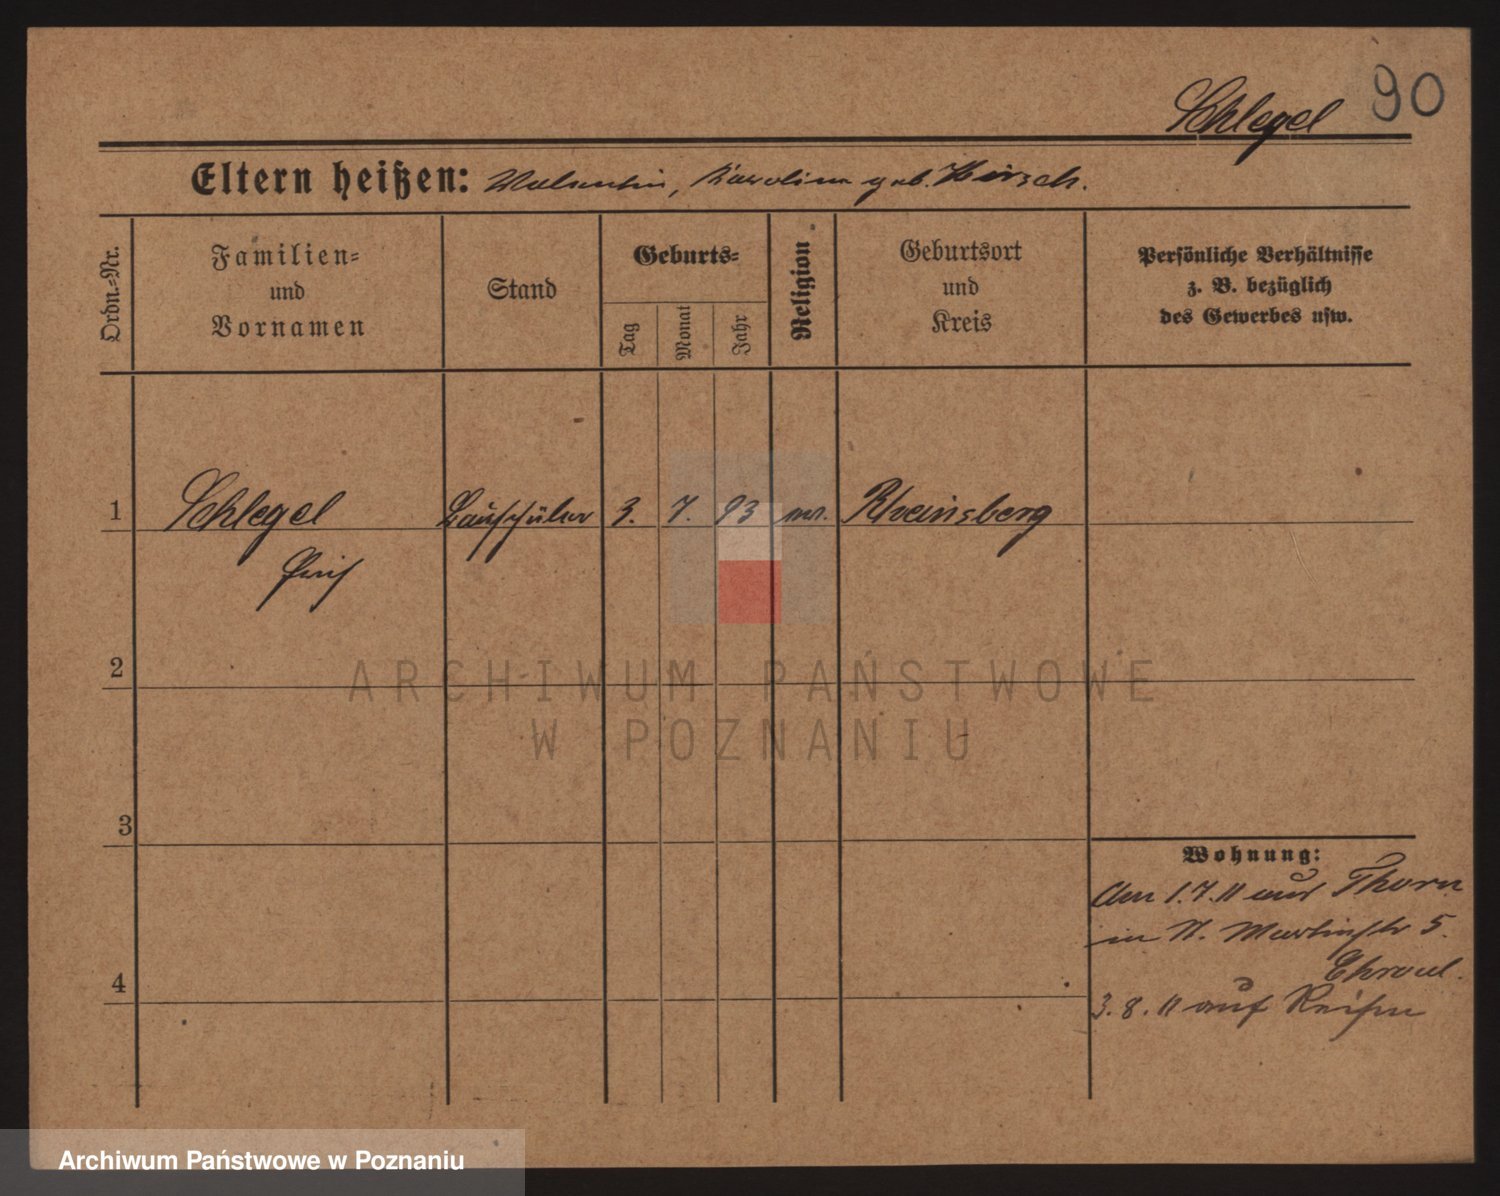 90
Schlegel
Eltern heißen: Valentin, Karoline geb. Hirsch.
Ordn.-Nr.
Familien-
und
Vornamen
Stand
Geburts-
Tag
Monat
Jahr
Religion
Geburtsort
und
Kreis
Persönliche Verhältnisse
z. B. bezüglich
des Gewerbes usw.
1 Schlegel Bauschüler 3. 7. 93 Rheinsberg
2
3
4
Wohnung:
Am 1.7.11 aus Thorn
in St. Martinstr 5.
3.8.11 auf Reisen
ARCHIWUM PAŃSTWOWE
W POZNANIU
Archiwum Państwowe w Poznaniu